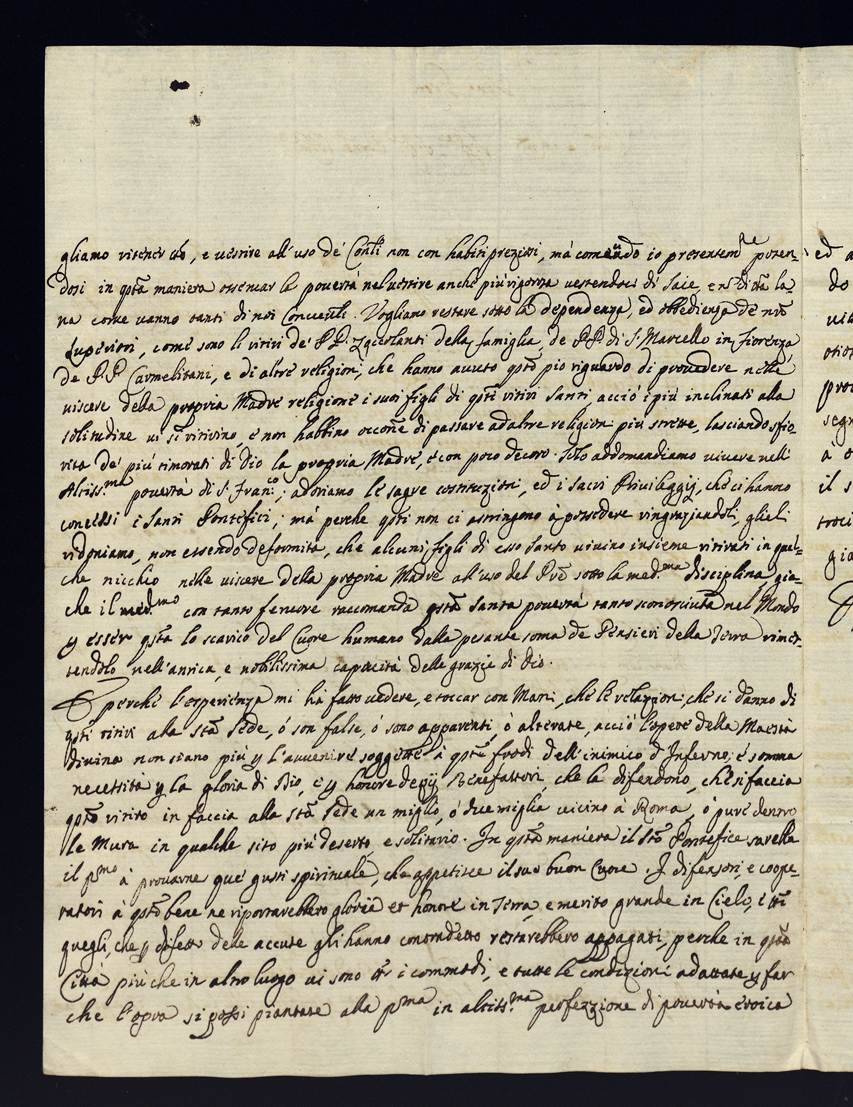 gliamo ritener cio, e vestire all'uso de' Con.ti non con habiti prezzisi, má come vado io presentem.te poten-
dosi in qsta maniera osservar la povertá nel vestire anche piú rigoroza vestendoci di Saie, e di la-
na come vanno tanti di noi Conventli. Vogliamo restare sotto la dependenza, ed obbedienza de nri
Superiori, come sono li ritiri de' P.P. Zoccolanti della famiglia, de P.P. di S. Marcello in Fiorenza
de P.P. Carmelitani, e di altre religioni, che hanno avuto qsto pio riguardo di provedere nelle
viscere della propria Madre religione i suoi figli di qsti ritiri Santi acció i piú inclinati alla
solitudine vi si ritirino, e non habbino occone di passare ad altre religioni piú strette, lasciando sfio-
rita de' piú timorati di Dio la propria Madre, e con poco decoro. Solo addomandiamo vivere nell'
Altiss.ma povertá di S. Fran.co; adoriamo le sagre costituzioni, ed i sacri Privileggij, che ci hanno
concessi i Santi Pontefici; má perche qsti non ci astringono á possedere ringraziandoli, glieli
ridoniamo, non essendo deformitá, che alcuni figli di esso Santo vivino insieme ritirati in qual-
che nicchio nelle viscere della propria Madre all'uso del Pre sotto la med.ma disciplina, gia-
che il med.mo con tanto fervore raccomanda qsta Santa povertá tanto sconosciuta nel Mondo
p esser qsta lo scarico del Cuore humano dalla pesante soma de Pensieri della Terra rimet-
tendolo nell'antica, e nobilissima capacitá delle grazie di Dio.
E perche l'esperienza mi há fatto vedere, e toccar con Mani, che le relazioni, che si danno di
qsti ritiri alla Sta Sede, ó son false, ó sono apparenti, ó alterate, acció l'opere della Maestá
divina non siano piú p l'avvenire soggette á qste frodi dell'inimico d'Inferno, é somma
necessitá p la gloria di Dio, e p honore degij Benefattori, che la difendono, che si faccia
qsto ritiro in faccia alla Sta Sede un miglio, ó due miglia vicino á Roma, ó pure dentro
le Mura in qualche sito piú deserto, e solitario. In qsta maniera il Sto Pontefice sarebbe
il pmo á provarne que' gusti spirituali, che appetisce il suo buon Cuore. I difensori, e coope-
ratori á qsto bene ne riportarebbero gloria et honore in Terra, e merito grande in Cielo, e tti
quegli, che p difetto delle accuse gli hanno contradetto restarebbero appagati, perche in qsta
Cittá piú che in altro luogo vi sono tti i commodi, e tutte le condizioni adattate p far
che l'opra si possi piantare alla pma in altiss.ma perfezzione di povertá eroica